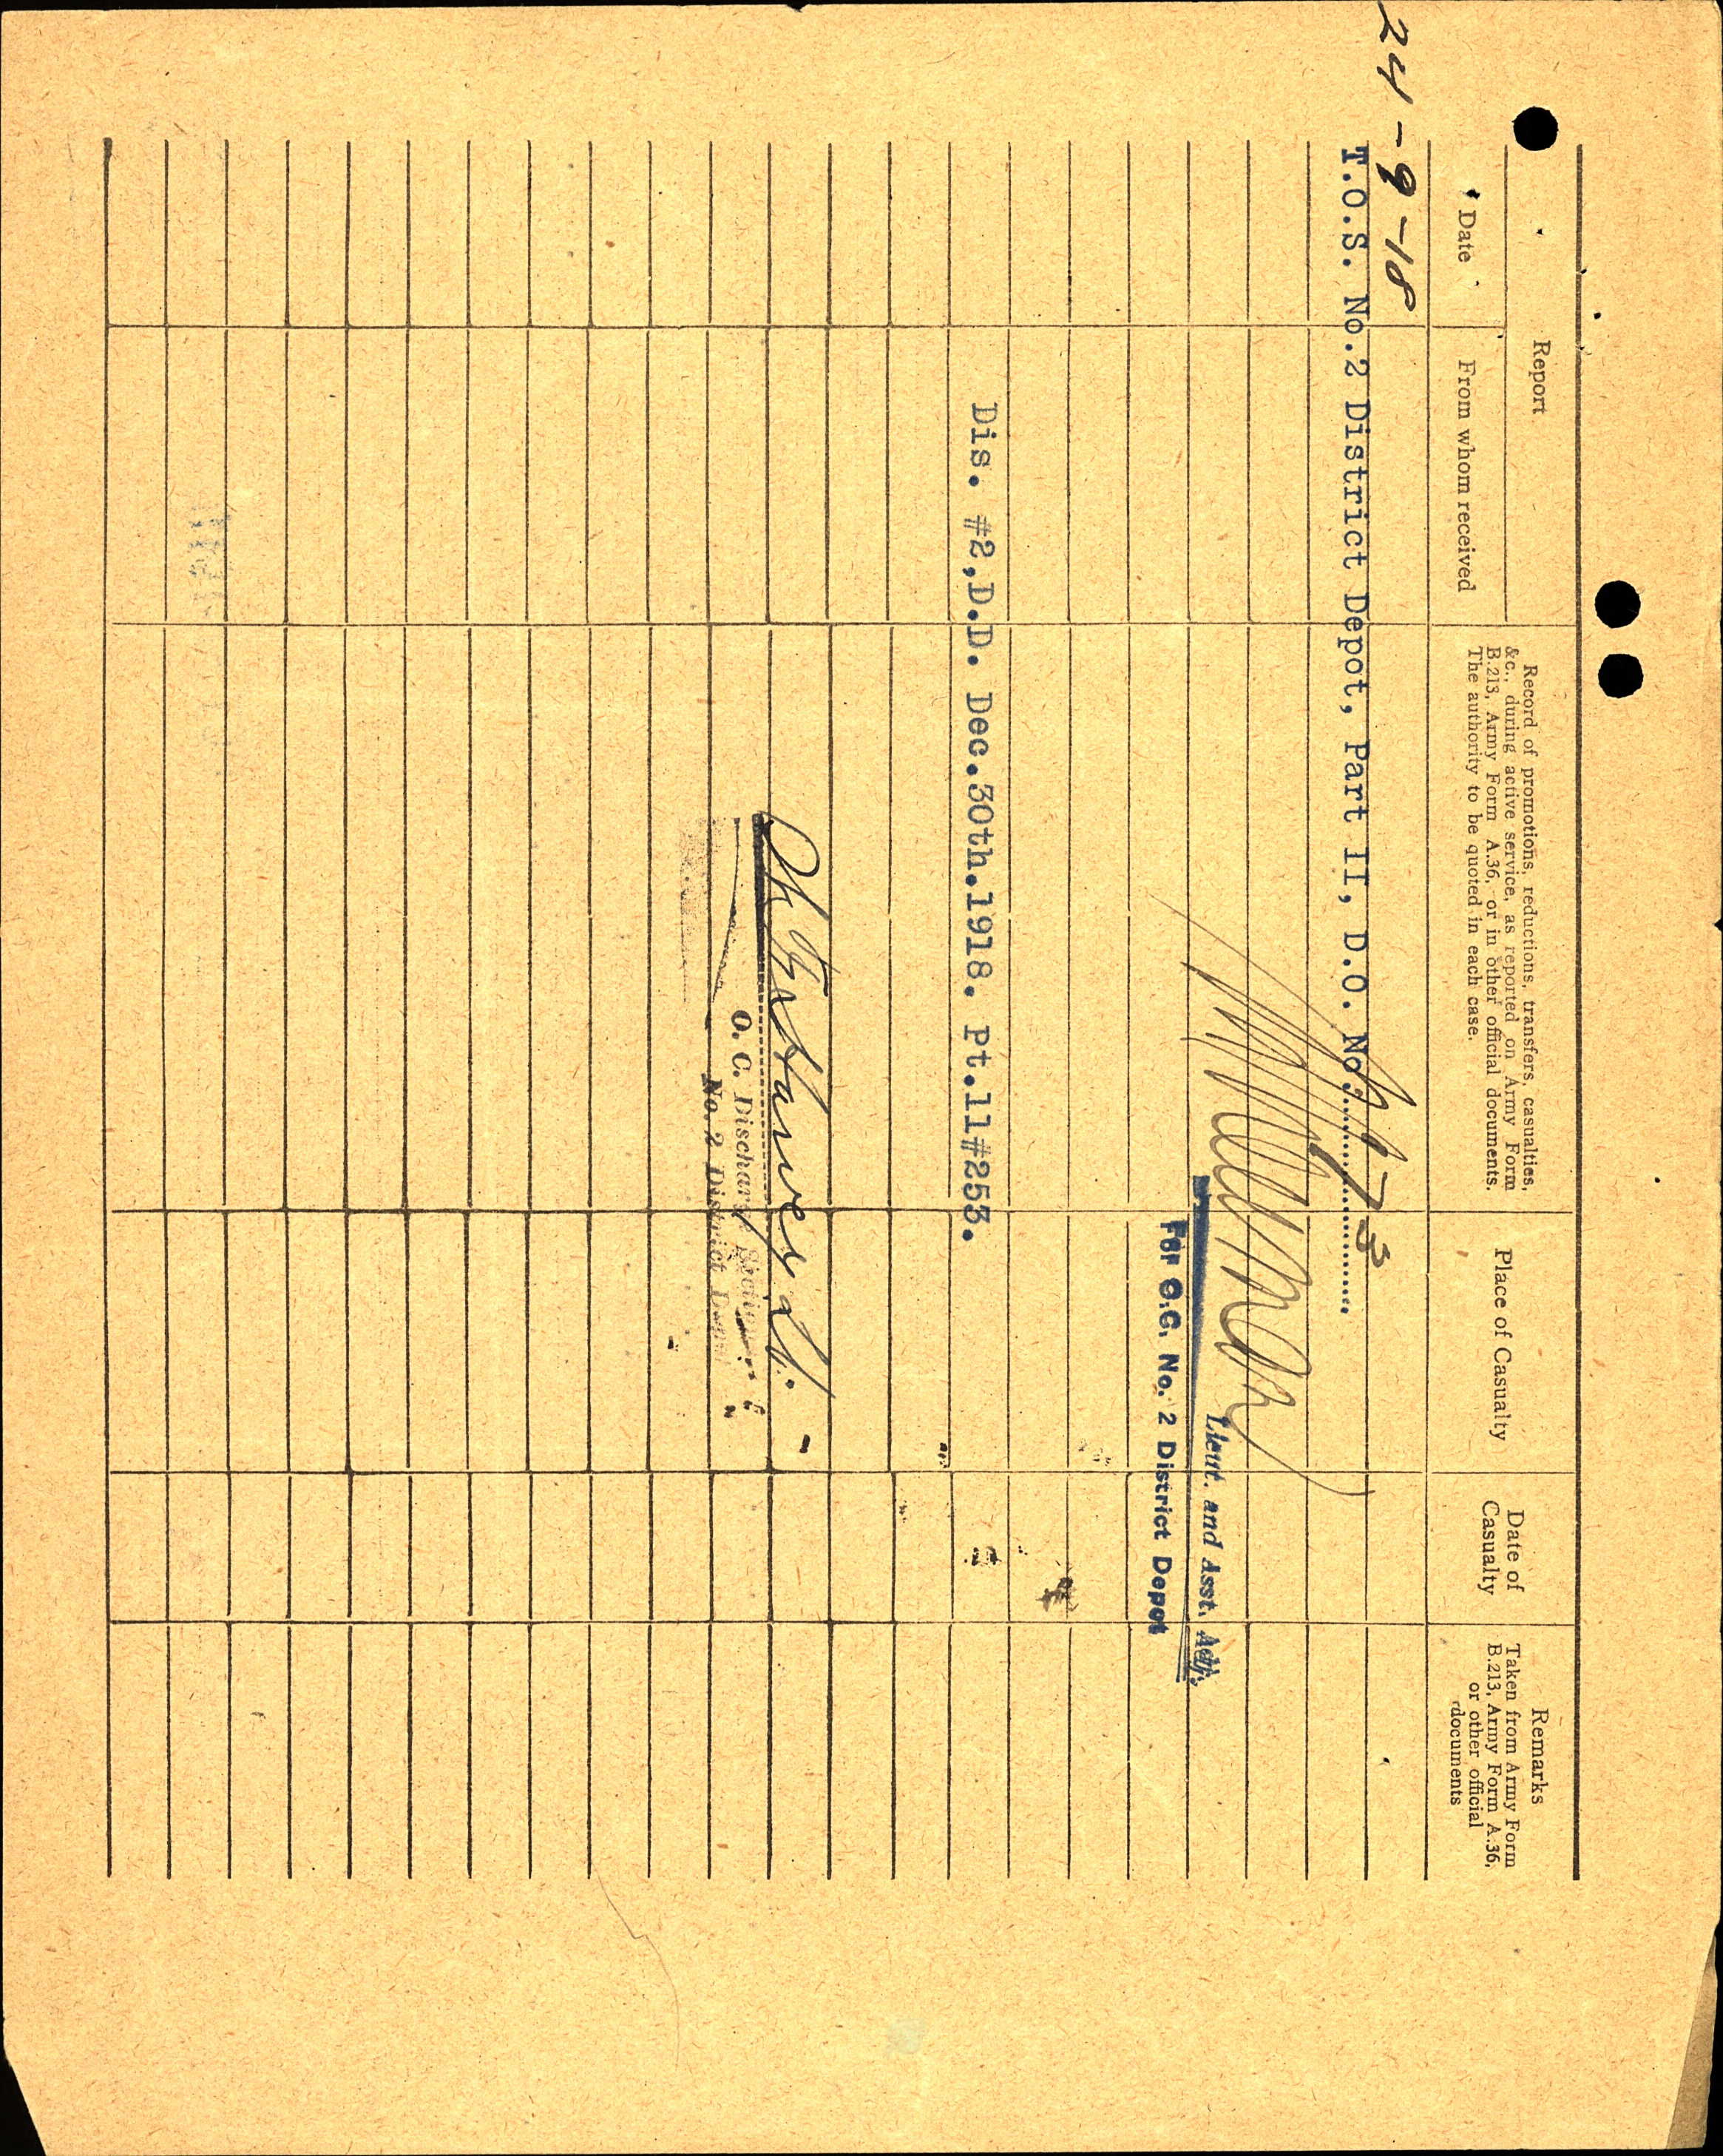 Report
Date
From whom received
Record of promotions, reductions, transfers, casualties,
&c., during active service, as reported on Army Form
B.213, Army Form A.36, or in other official documents.
The authority to be quoted in each case.
Place of Casualty
Date of
Casualty
Remarks
Taken from Army Form
B.213, Army Form A.36,
or other official
documents
24-9-18
T.O.S. No.2 District Depot, Part II, D.O. No.
Lieut. and Asst. Adj.
For O.C. No. 2 District Depot
Dis. #2,D.D. Dec.30th.1918. Pt.11#253.
Lt.
O. C. Discharge Section
No. 2 District Depot